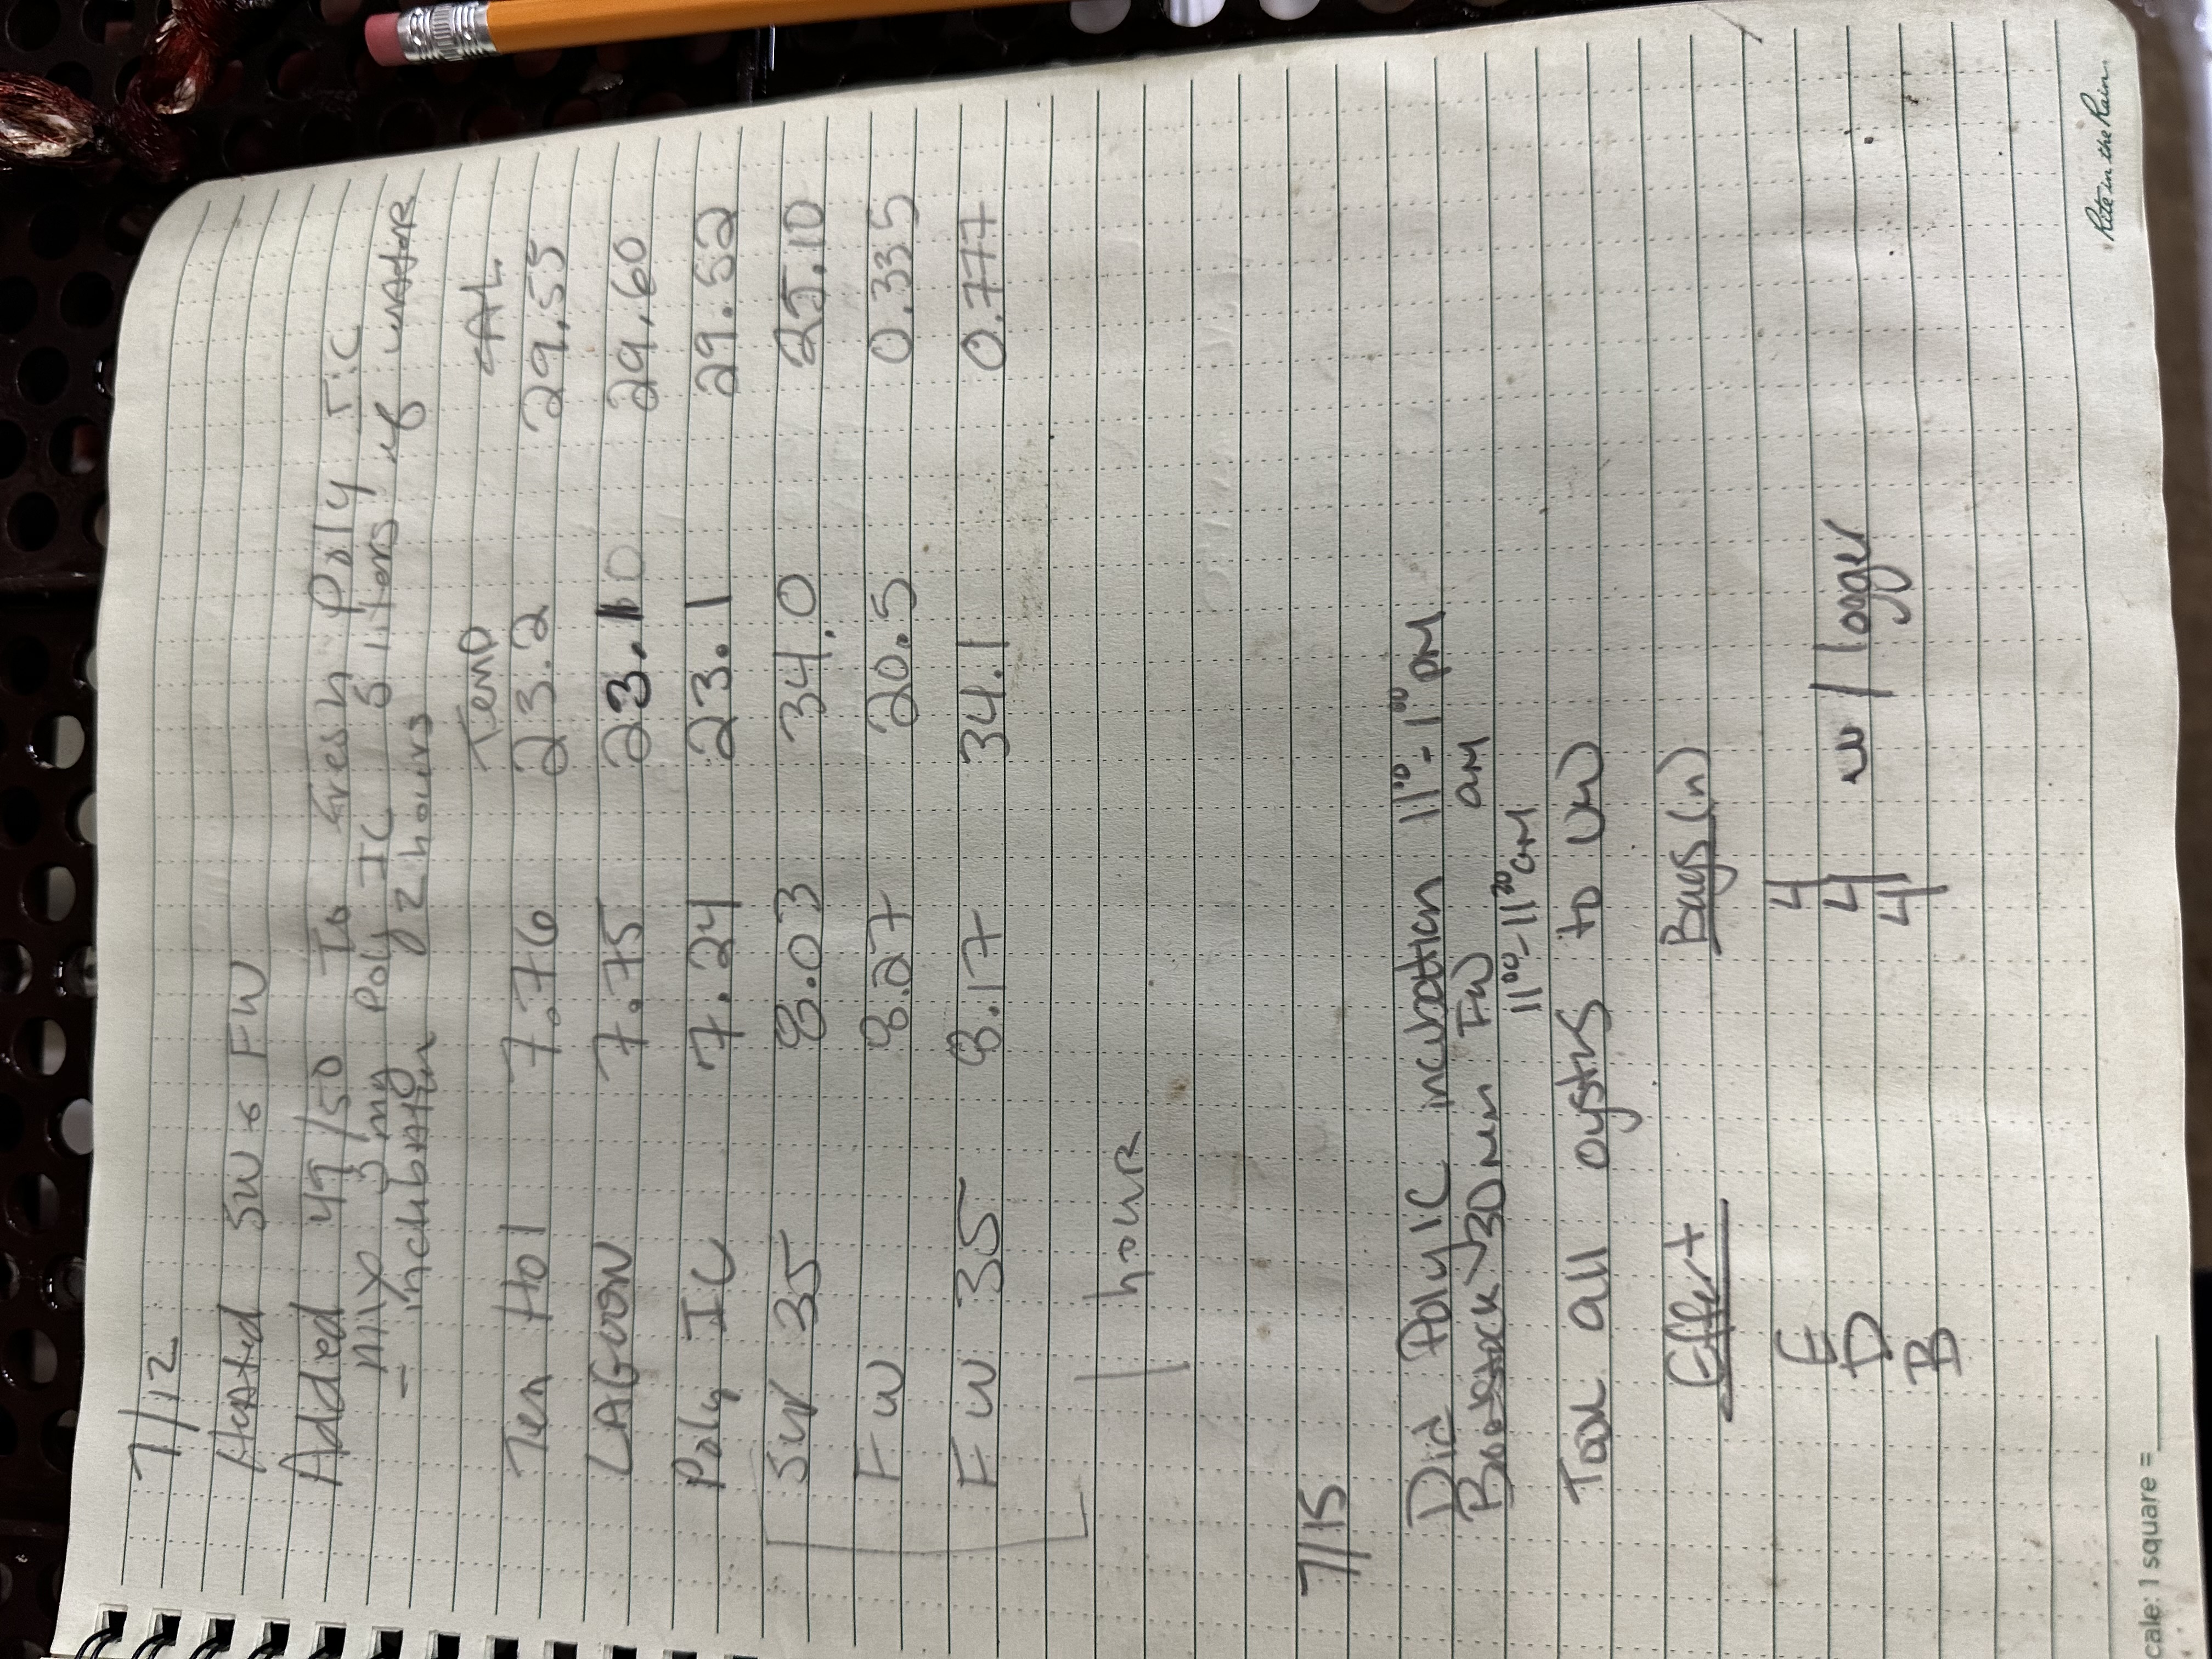 7/12
Heated SW & FW
Added 49/50 to fresh Poly I:C
mix 3 mg Poly IC 5 liters of water
- incubation 2 hours
Temp SAL
Ten Hol 7.76 23.2 29.55
LAGOON 7.75 23.10 29.60
Poly IC 7.24 23.1 29.52
SW 35 8.03 34.0 25.10
FW 8.27 20.5 0.335
FW 35 8.17 34.1 0.777
1 hour
7/15
Did Poly IC incubation 11⁰⁰-1⁰⁰ pm
Broodstock 30 min FW am
11⁰⁰-11³⁰ am
Took all oysters to UW
Effort Bags (n)
E 4
D 4 w/ logger
B 4
Rite in the Rain
cale: 1 square =